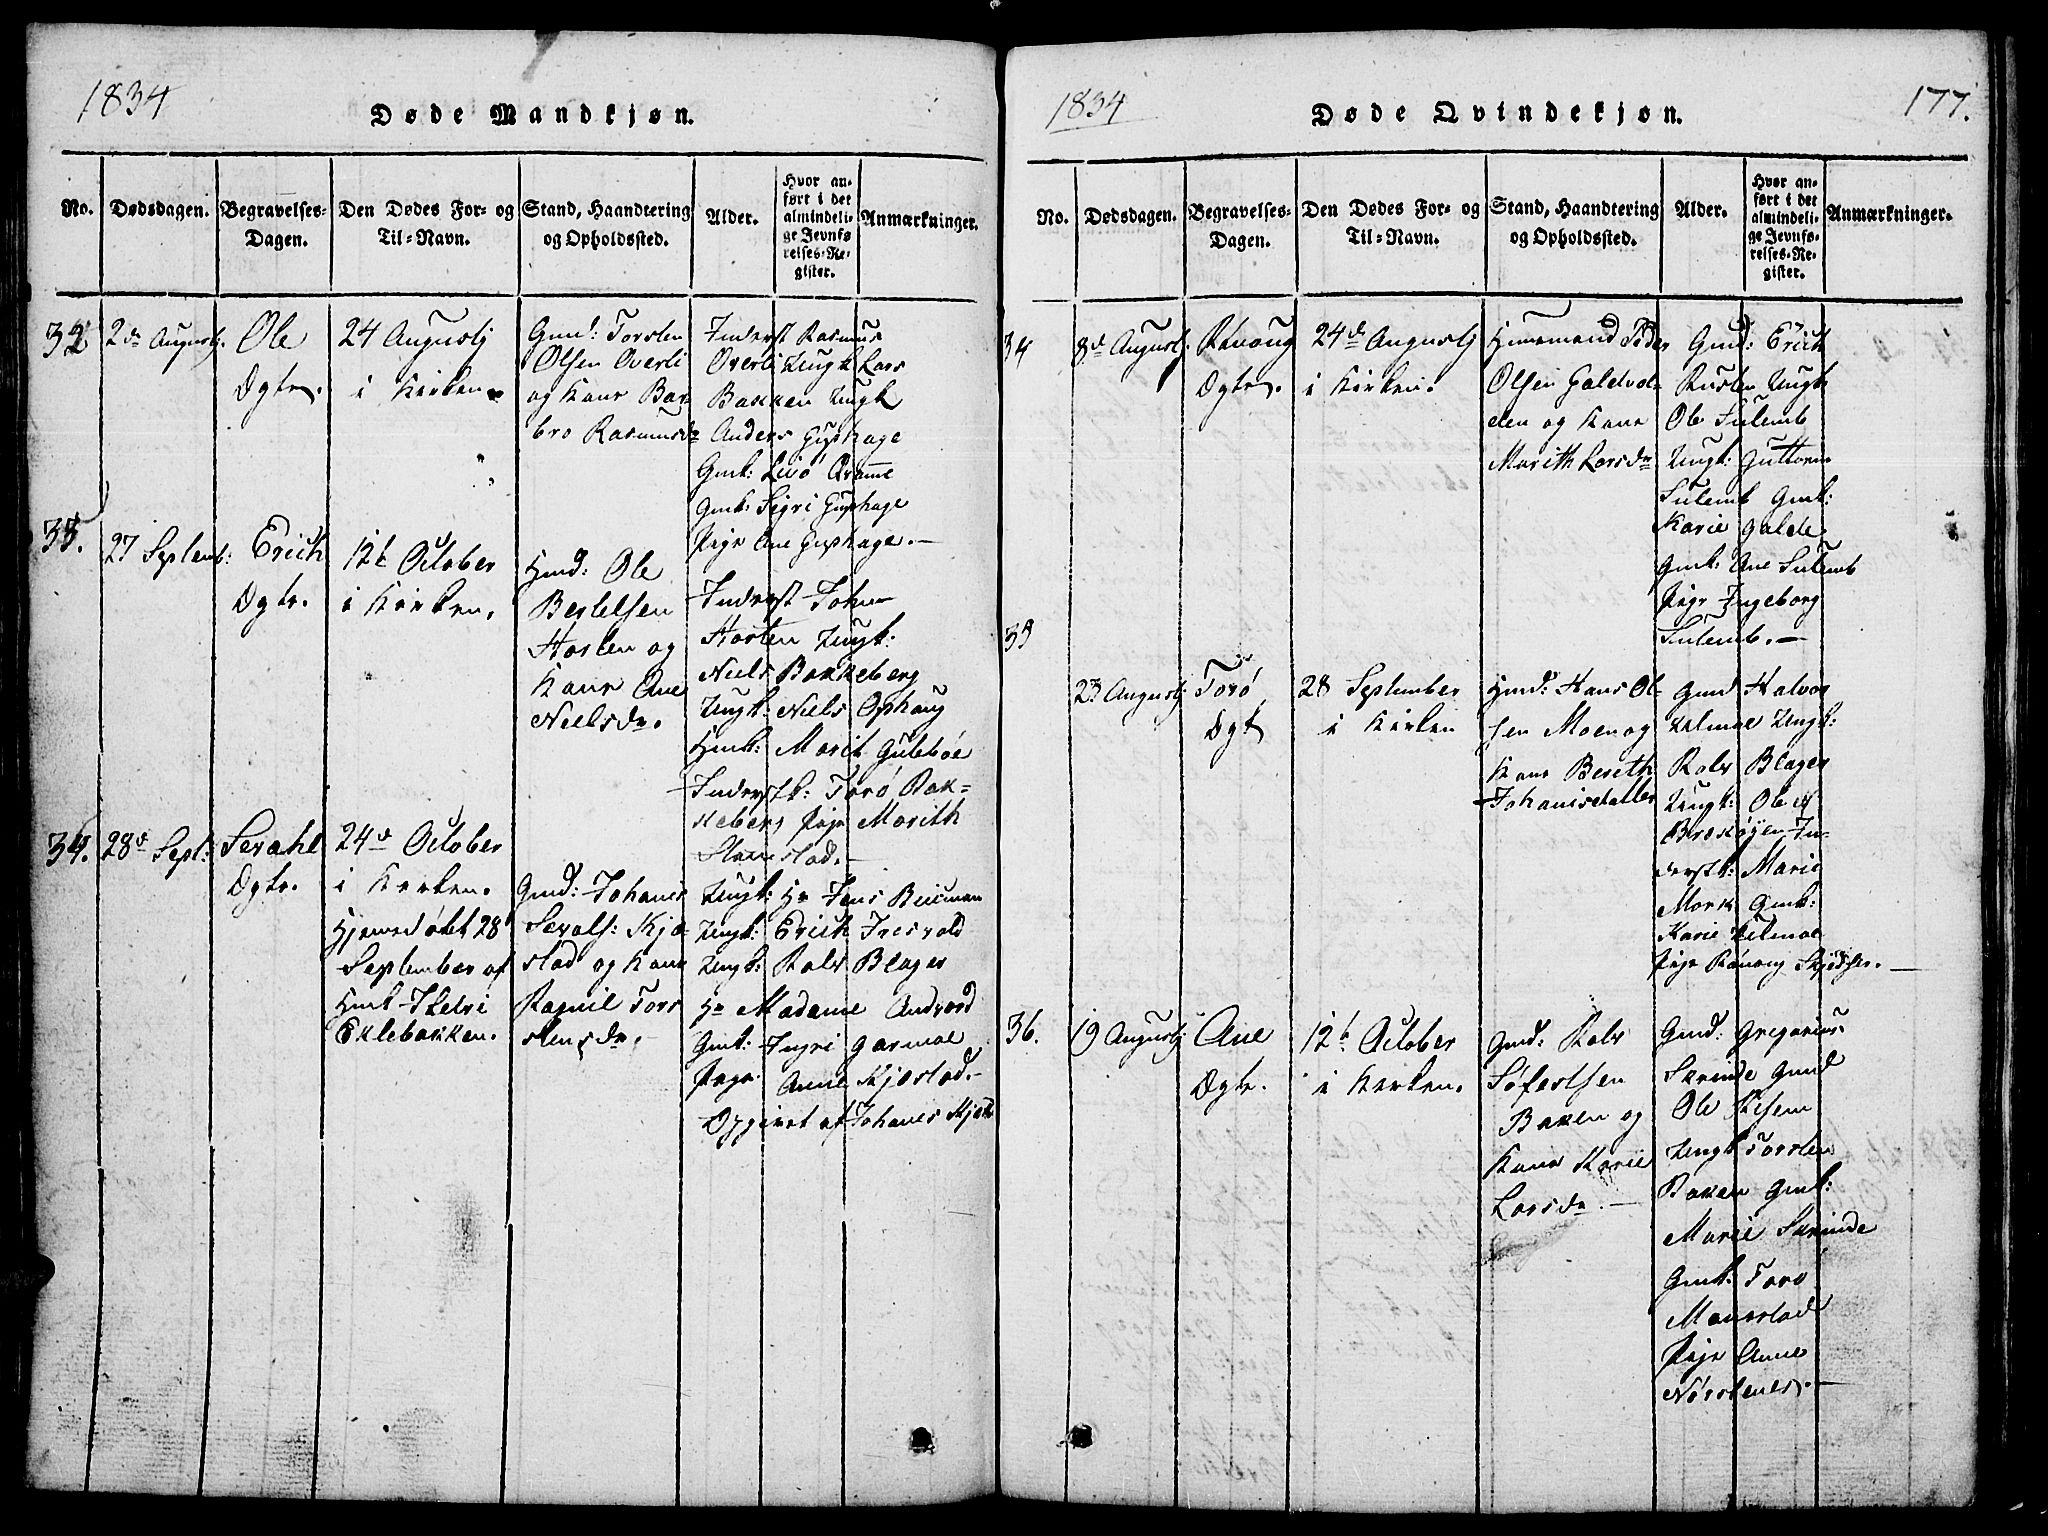 1834
Døde Mandkjøn.
No.
Dødsdagen.
Begravelses-
Dagen.
Den Dødes For- og
Til-Navn.
Stand, Haandtering
og Opholdssted.
Alder.
Hvor an-
ført i det
almindeli-
ge Jevnfø
relses-Re-
gister.
Anmærkninger.
32
2den Augustj.
Ole
Dgtr.
24 Augustj
i Kirken
Gmd: Torsten
Olsen Overli
og Kone Bar
bro Rasmusdr
Inderst Rasmus
Overli Ungk Lars
Bakken Ungk
Anders
Gmk: Livø
Gmk: Sigri
Pige Ane
33.
27 Septemb:
Erich
Dgtr.
12t October
i Kirken.
Hmd: Ole
Bertelsen
Horten og
Kone Ane
Nielsdr.
Inderst John
Horten Ungk:
Niels Bakkeberg
Ungk: Niels Ophaug
Hmk: Marit Gulebøe
Inderstk: Torø Bak-
keberg Pige Marith
34.
28d Sept:
Serahl
Dgtr.
24d October
i Kirken.
Hjemedøbt 28
September af
Hmk
Eklebakken.
Gmd: Johanis
Serals: Kjø-
stad og Kone
Ragnil Tors
stensdr.
Ungk: Hr Jens
Ungk: Erich
Ungk: Rolv Blager
Hr Madame Andvord
Gmk: Ingri Garmoe
Pige: Anne Kjøstad.
Opgivet af Johanes
1834
Døde Qvindekjøn.
177.
No.
Dødsdagen.
Begravelses-
Dagen.
Den Dødes For- og
Til-Navn.
Stand, Haandtering
og Opholdssted.
Alder.
Hvor an-
ført i det
almindeli-
ge Jevnfø-
relses-Re-
gister.
Anmærkninger.
34
8d Augustj.
Rønoug
Dgtr.
24d Augustj
i Kirken.
Huusmand Peder
Olsen
og Kone
Marith Larsdr
Gmd: Erich
Rusten Ungk
Ole Sulemb
Ungk: Guttorm
Sulemb Gmk:
Karie Galde
Gmk: Ane Sulemb
Pige Ingeborg
Sulemb.
35
23 Augustj
Torø
Dgt
28 September
i Kirken
Hmd: Hans Ol-
sen Moen og
Kone Bereth
Johanisdatter
Gmd Halvor
Ungk:
Rolv Blager
Ungk: Ole
In-
derstk: Marie
Mork Gmk:
Karie
Pige Rønoug
36.
19 Augustj
Ane
Dgtr.
12t October
i Kirken.
Gmd: Rolv
Søfestsen
Baken og
Kone Karie
Larsdr.
Gmd: Gregorius
Skrinde Gmd
Ole
Ungk Torsten
Baken Gmk:
Marie Skrinde
Gmk: Torø
Pige Anne